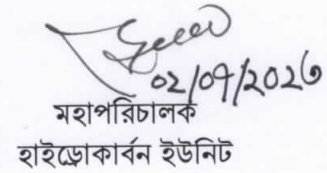 ০২/০৭/২০২৩
মহাপরিচালক
হাইড্রোকার্বন ইউনিট